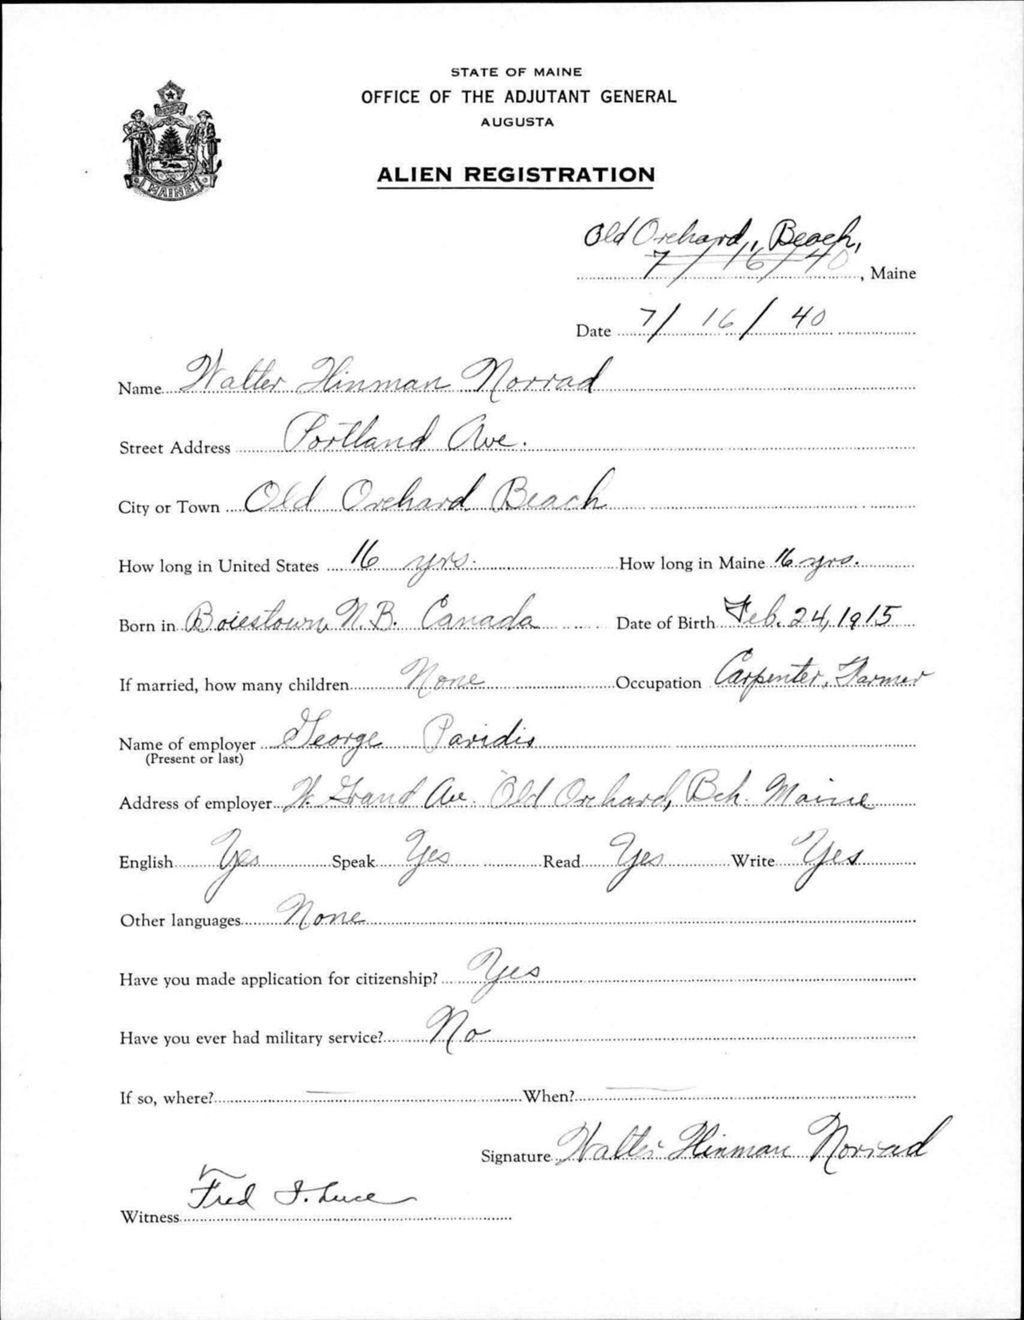 STATE OF MAINE
OFFICE OF THE ADJUTANT GENERAL
AUGUSTA
ALIEN REGISTRATION
MAINE
Old Orchard, Beach,
7/16/40, Maine
Date 7/16/40
Name Walter Hinman Norrad
Street Address Portland Ave.
City or Town Old Orchard Beach
How long in United States 16 yrs. How long in Maine 16 yrs.
Born in Boiestown, N.B. Canada Date of Birth Feb. 24, 1915
If married, how many children None Occupation Carpenter, Farmer
Name of employer George Paridis
(Present or last)
Address of employer W. Grand Ave. Old Orchard, Bch. Maine
English Yes Speak Yes Read Yes Write Yes
Other languages None
Have you made application for citizenship? Yes
Have you ever had military service? No
If so, where? — When? —
Signature Walter Hinman Norrad
Witness Fred I. Luce